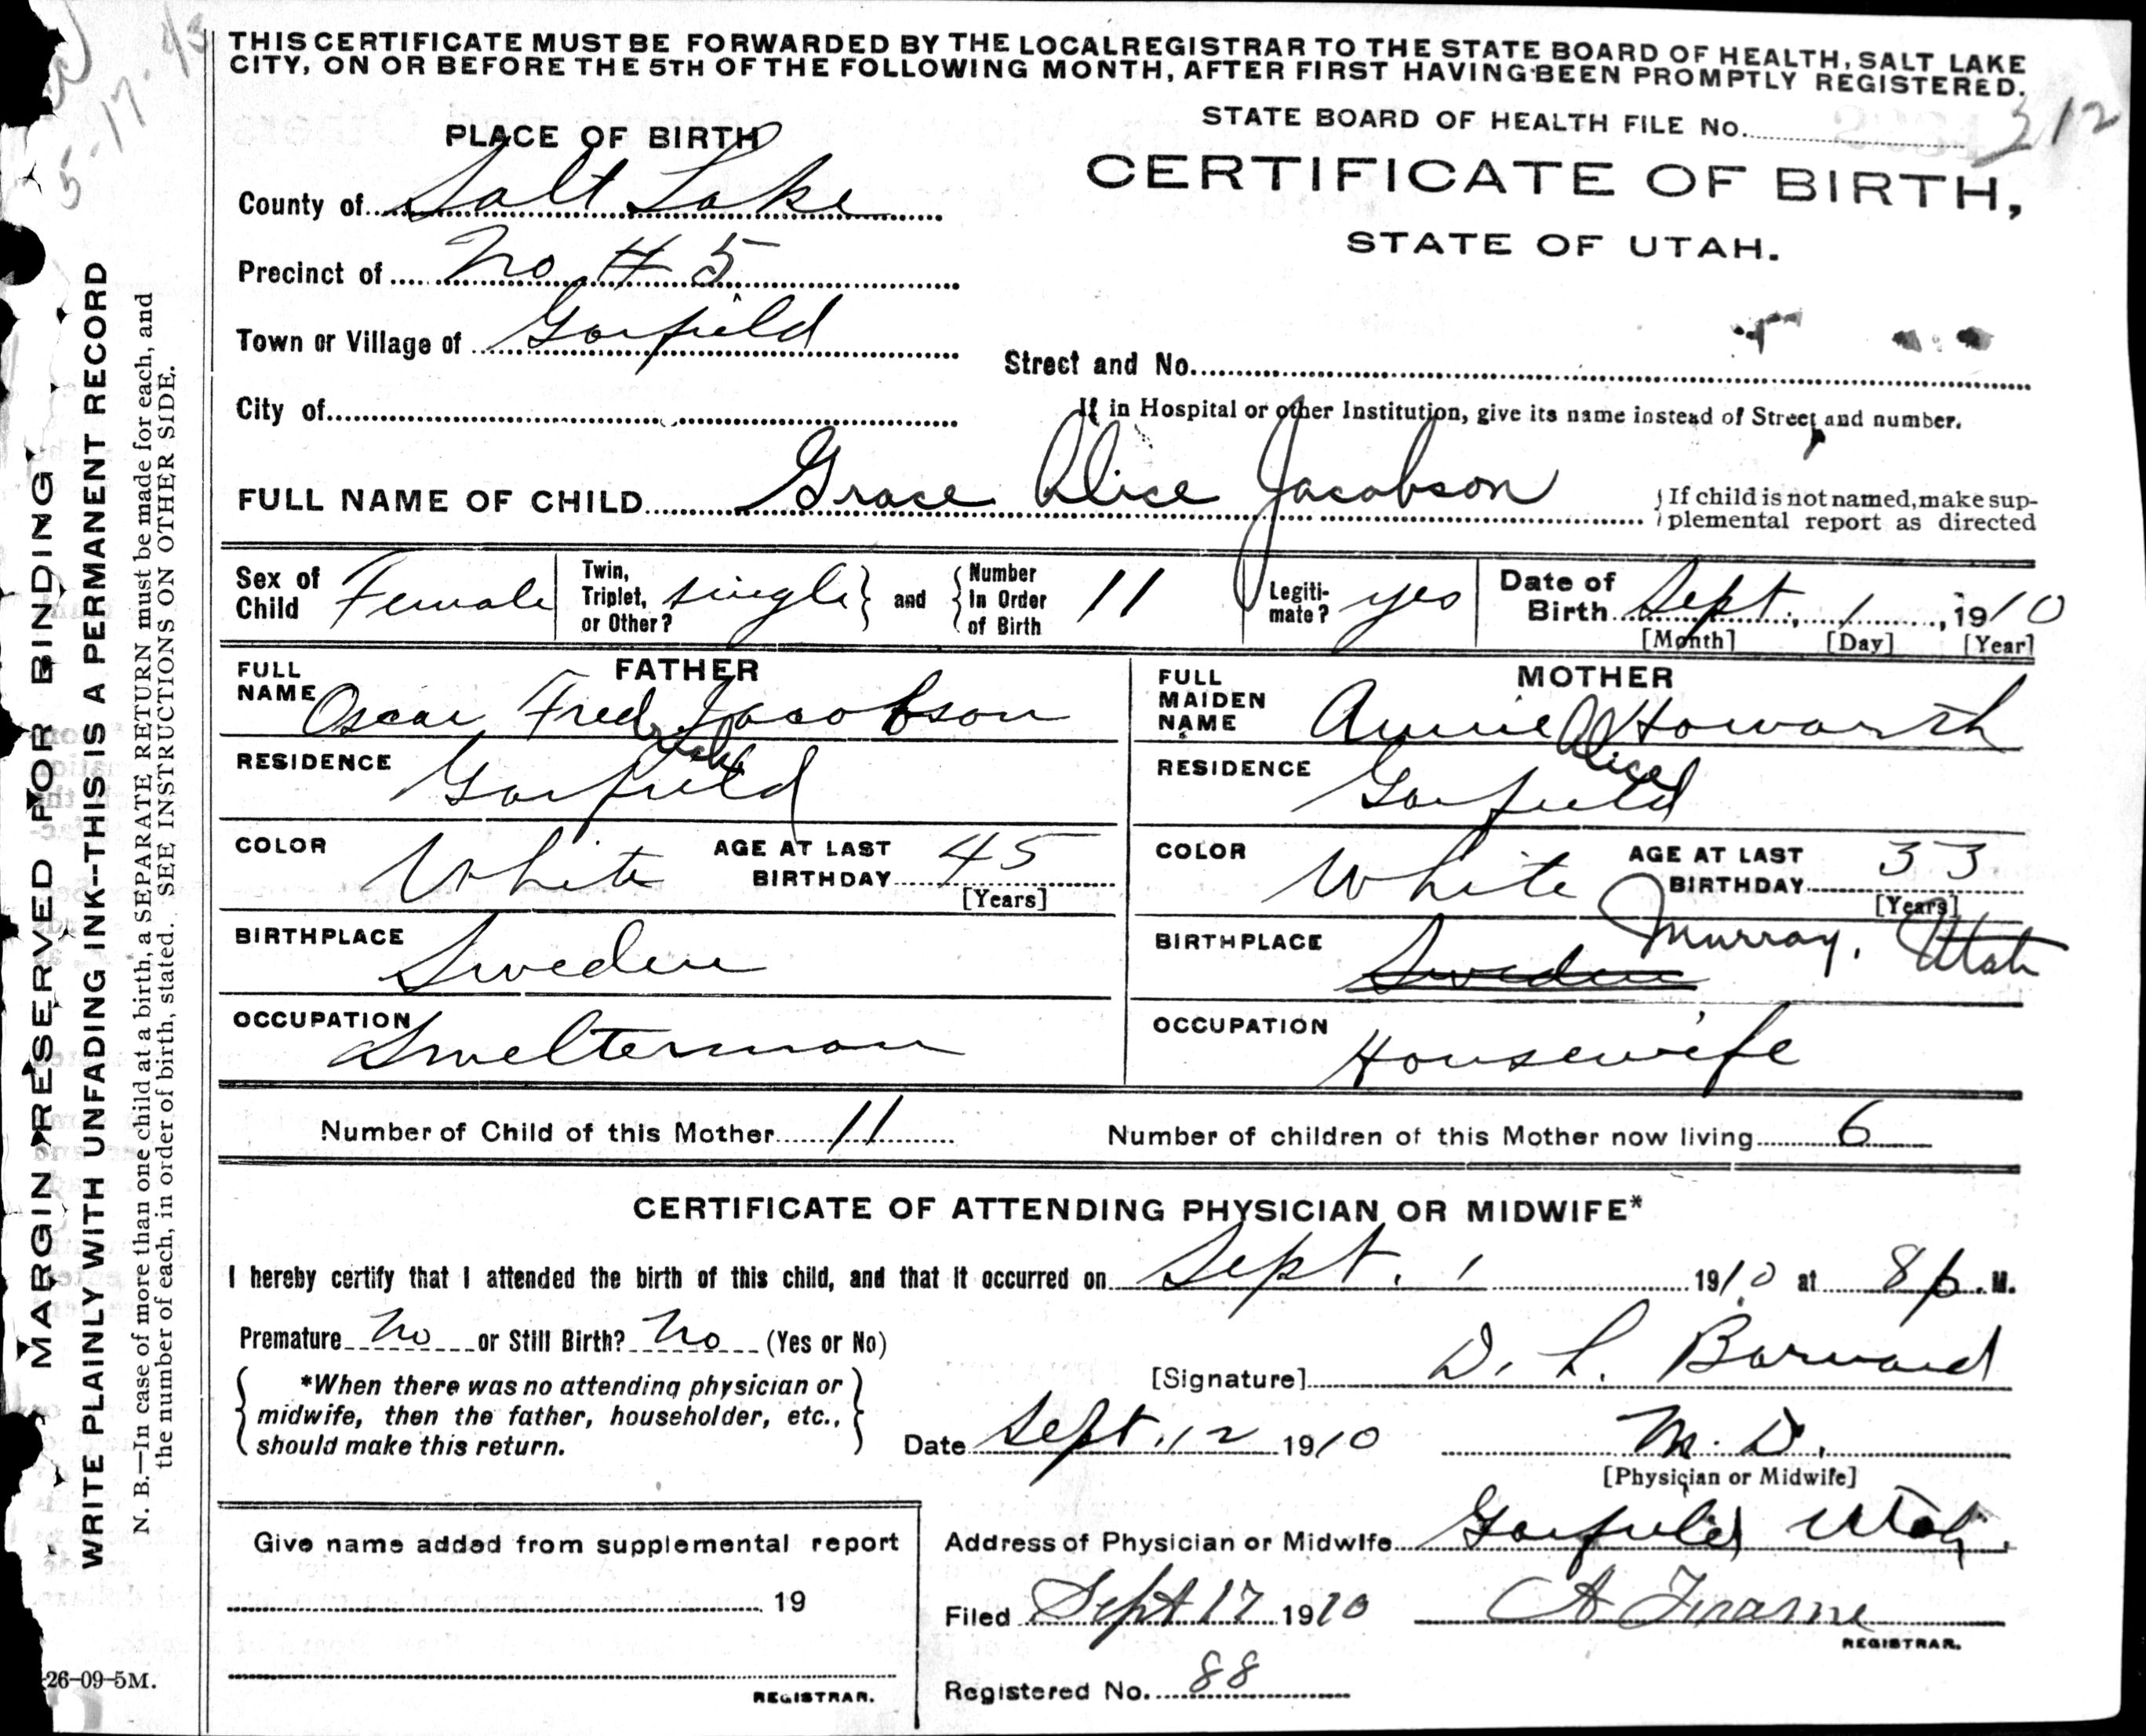 THIS CERTIFICATE MUST BE FORWARDED BY THE LOCAL REGISTRAR TO THE STATE BOARD OF HEALTH, SALT LAKE
CITY, ON OR BEFORE THE 5TH OF THE FOLLOWING MONTH, AFTER FIRST HAVING BEEN PROMPTLY REGISTERED.
STATE BOARD OF HEALTH FILE No. 312
CERTIFICATE OF BIRTH,
STATE OF UTAH.
PLACE OF BIRTH
County of Salt Lake
Precinct of No # 5
Town or Village of Garfield
Street and No.
City of
If in Hospital or other Institution, give its name instead of Street and number.
FULL NAME OF CHILD Grace Alice Jacobson
If child is not named, make sup-
plemental report as directed
Sex of Child Female
Twin, Triplet, or Other? single and Number In Order of Birth 11
Legiti-mate? yes
Date of Birth Sept. 1, 1910
[Month] [Day] [Year]
FATHER
FULL NAME Oscar Fredrick Jacobson
RESIDENCE Garfield
COLOR White AGE AT LAST BIRTHDAY 45
[Years]
BIRTHPLACE Sweden
OCCUPATION Smelterman
MOTHER
FULL MAIDEN NAME Annie Alice Howarth
RESIDENCE Garfield
COLOR White AGE AT LAST BIRTHDAY 33
[Years]
BIRTHPLACE Sweden Murray, Utah
OCCUPATION Housewife
Number of Child of this Mother 11 Number of children of this Mother now living 6
CERTIFICATE OF ATTENDING PHYSICIAN OR MIDWIFE*
I hereby certify that I attended the birth of this child, and that it occurred on Sept. 1 1910 at 8 p. M.
Premature No or Still Birth? No (Yes or No)
[Signature] D. L. Barnard
*When there was no attending physician or
midwife, then the father, householder, etc.,
should make this return.
Date Sept. 12 1910 M. D.
[Physician or Midwife]
Give name added from supplemental report
19
REGISTRAR.
Address of Physician or Midwife Garfield Utah.
Filed Sept 17 1910
REGISTRAR.
Registered No. 88
MARGIN RESERVED FOR BINDING
WRITE PLAINLY WITH UNFADING INK--THIS IS A PERMANENT RECORD
N. B.—In case of more than one child at a birth, a SEPARATE RETURN must be made for each, and
the number of each, in order of birth, stated. SEE INSTRUCTIONS ON OTHER SIDE.
26-09-5M.